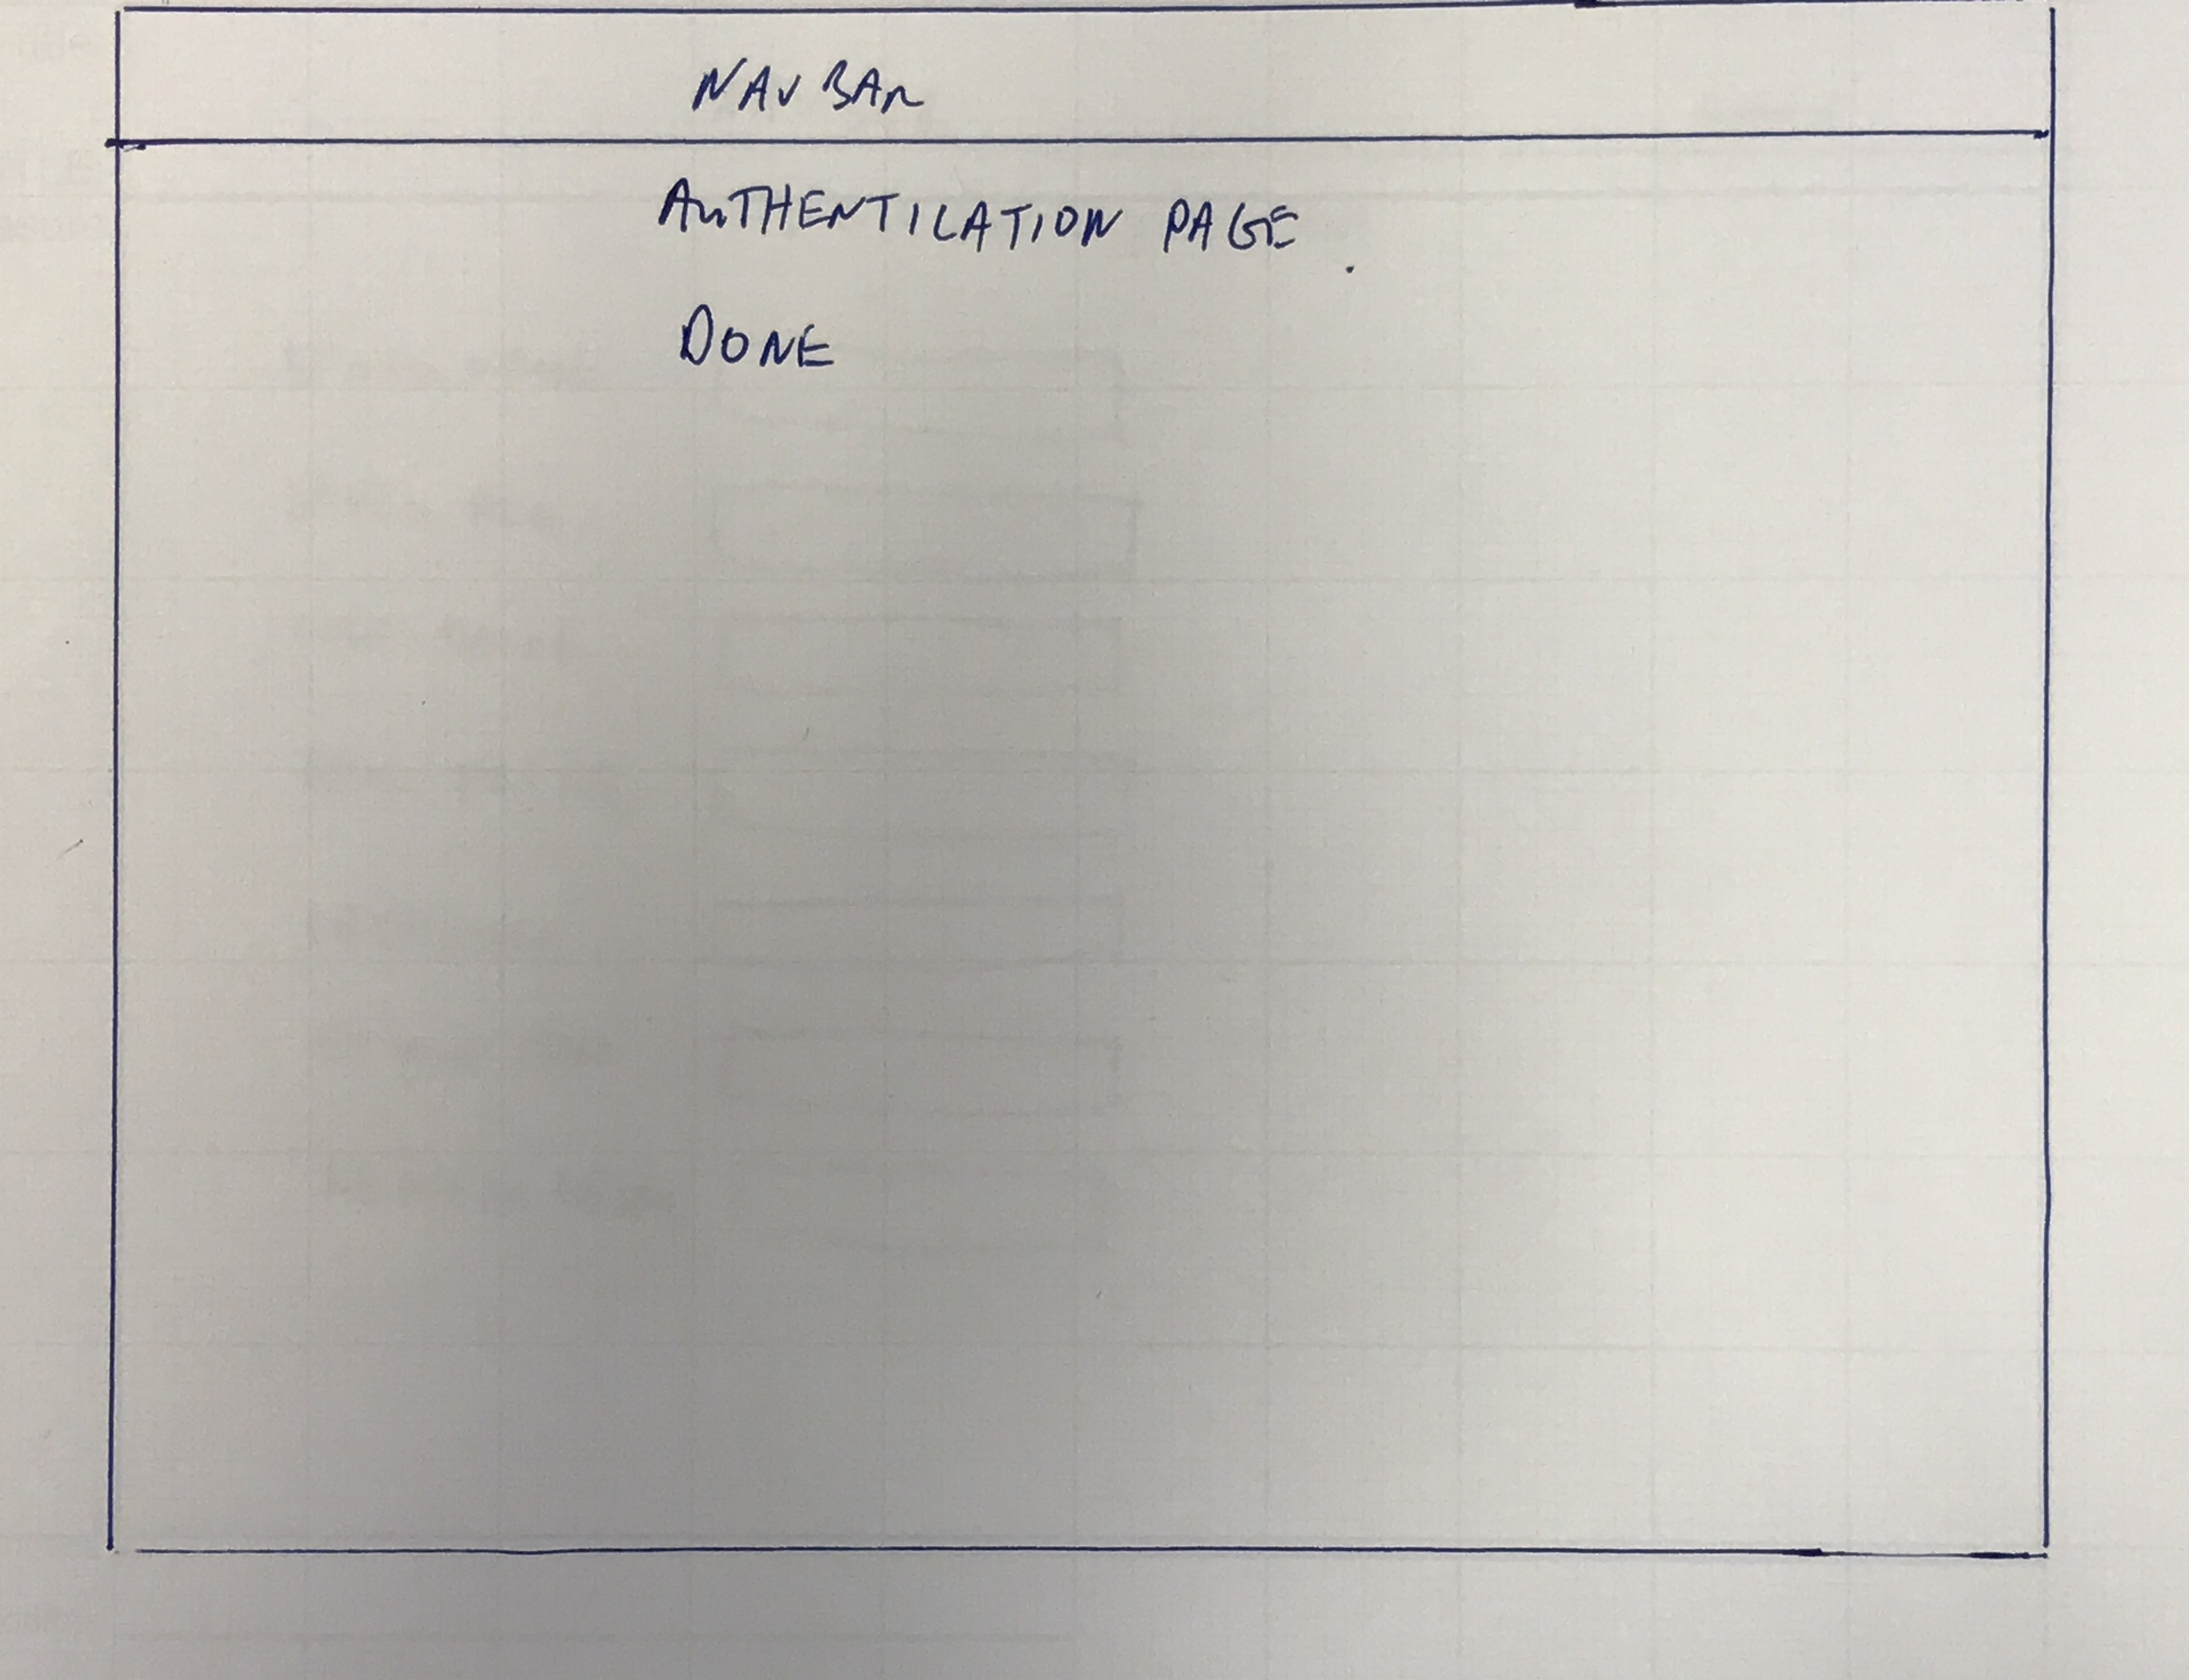 NAV BAR
AUTHENTICATION PAGE
DONE